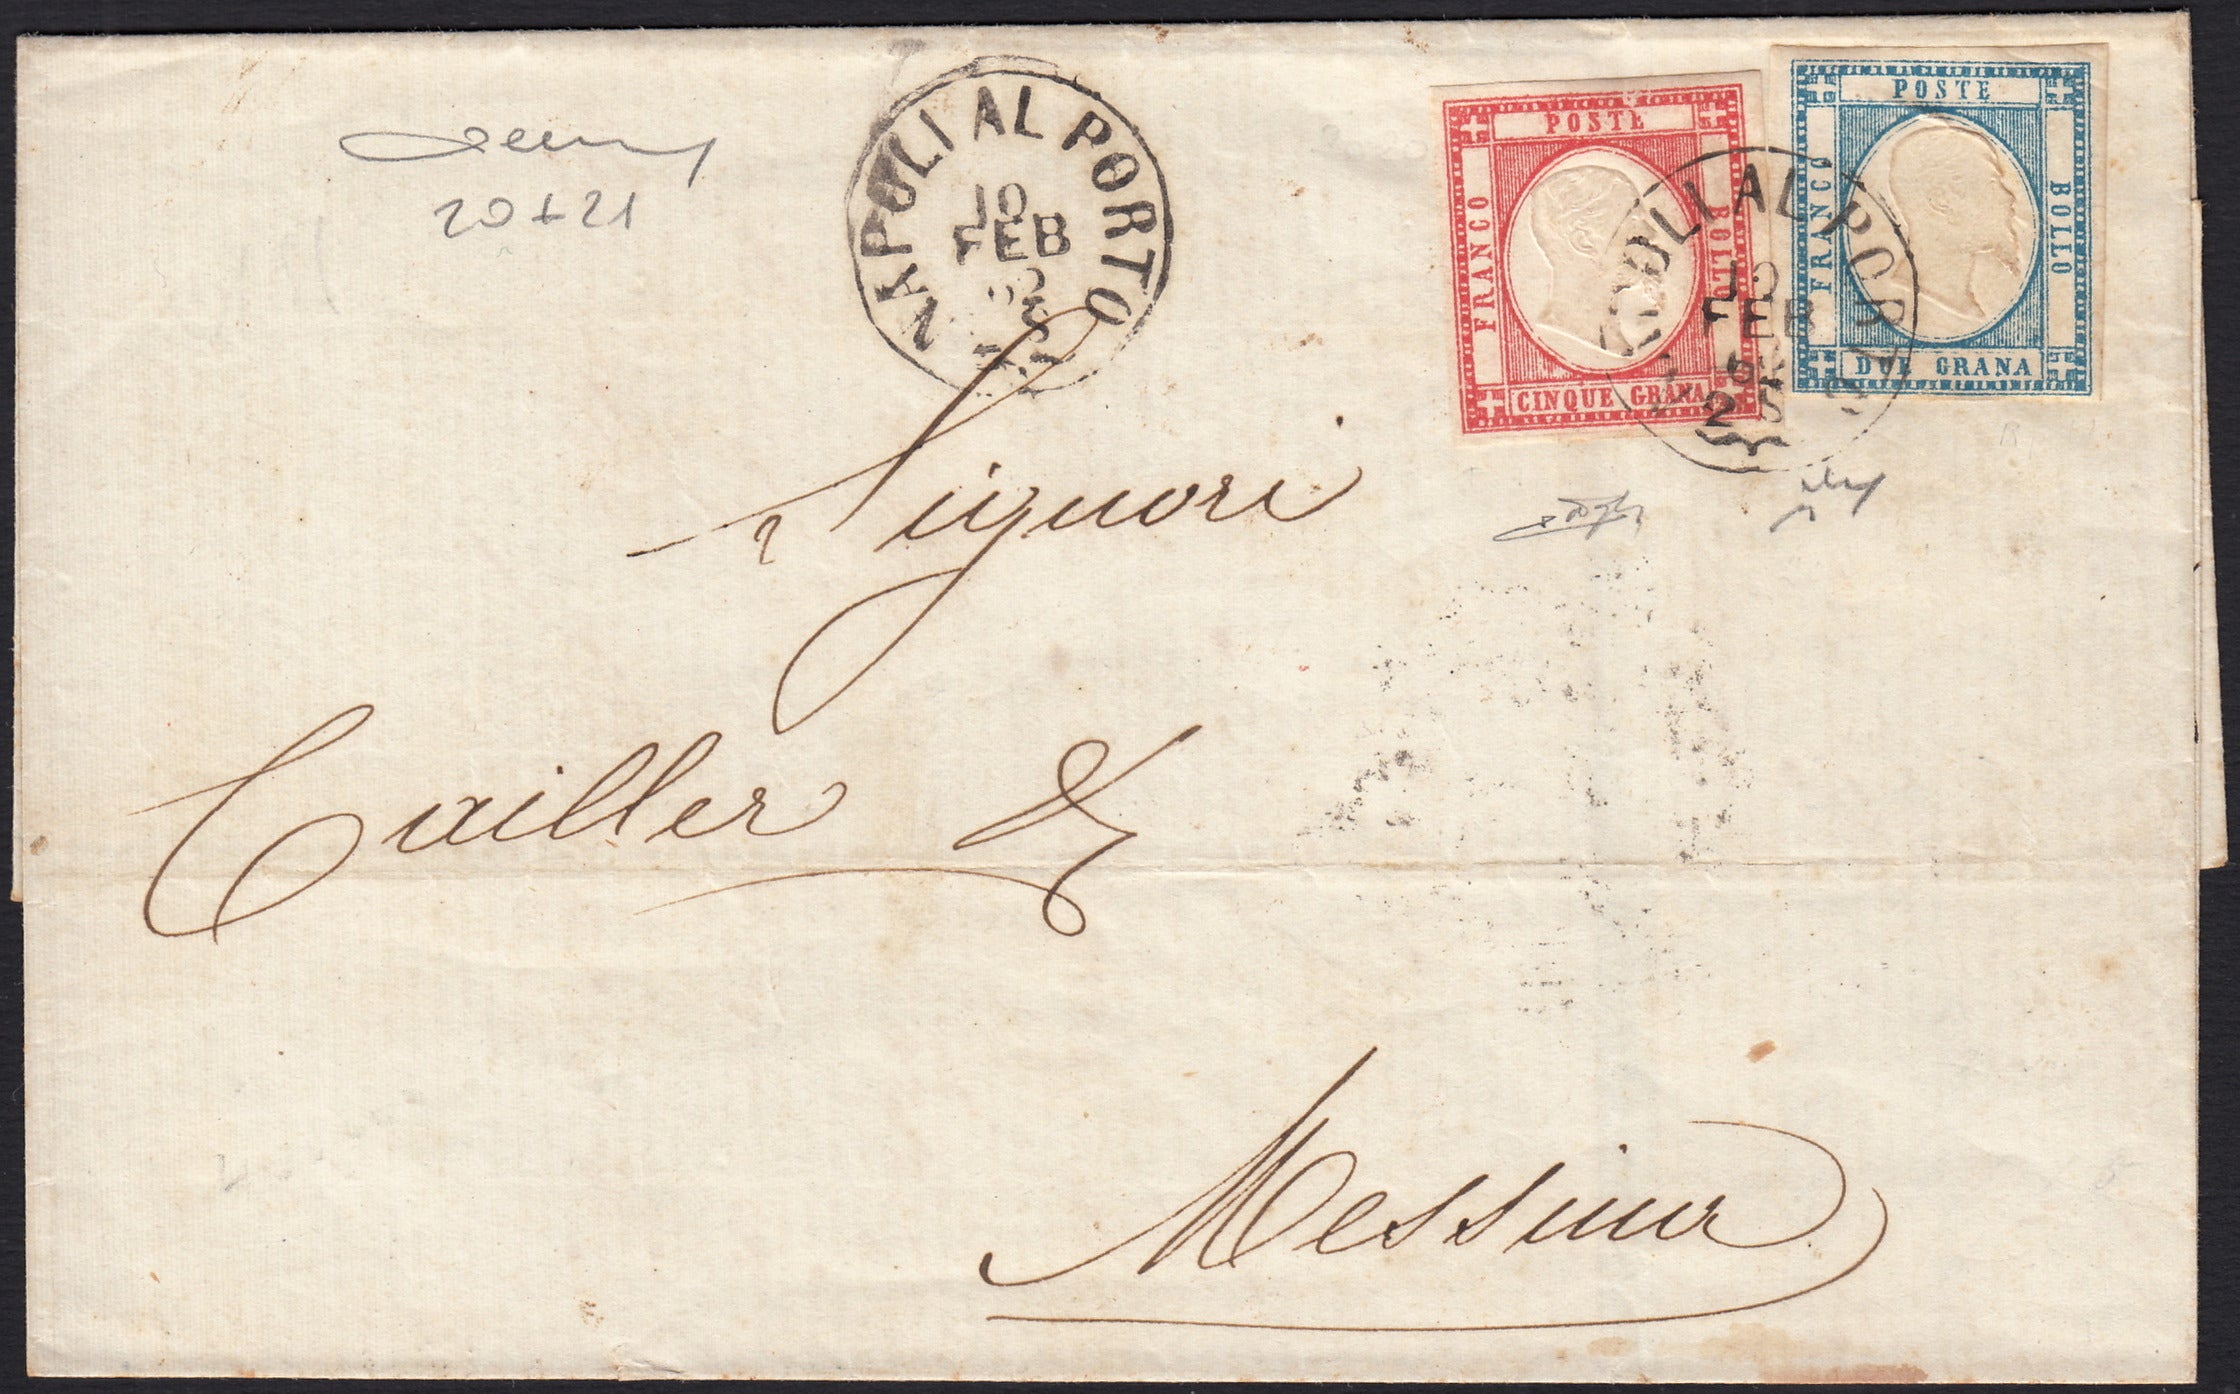 20+21
NAPOLI AL PORTO
10
FEB
POSTE
FRANCO
BOLLO
CINQUE GRANA
POSTE
FRANCO
BOLLO
DUE GRANA
10
FEB
2S
Signori
Cailler &
Messina